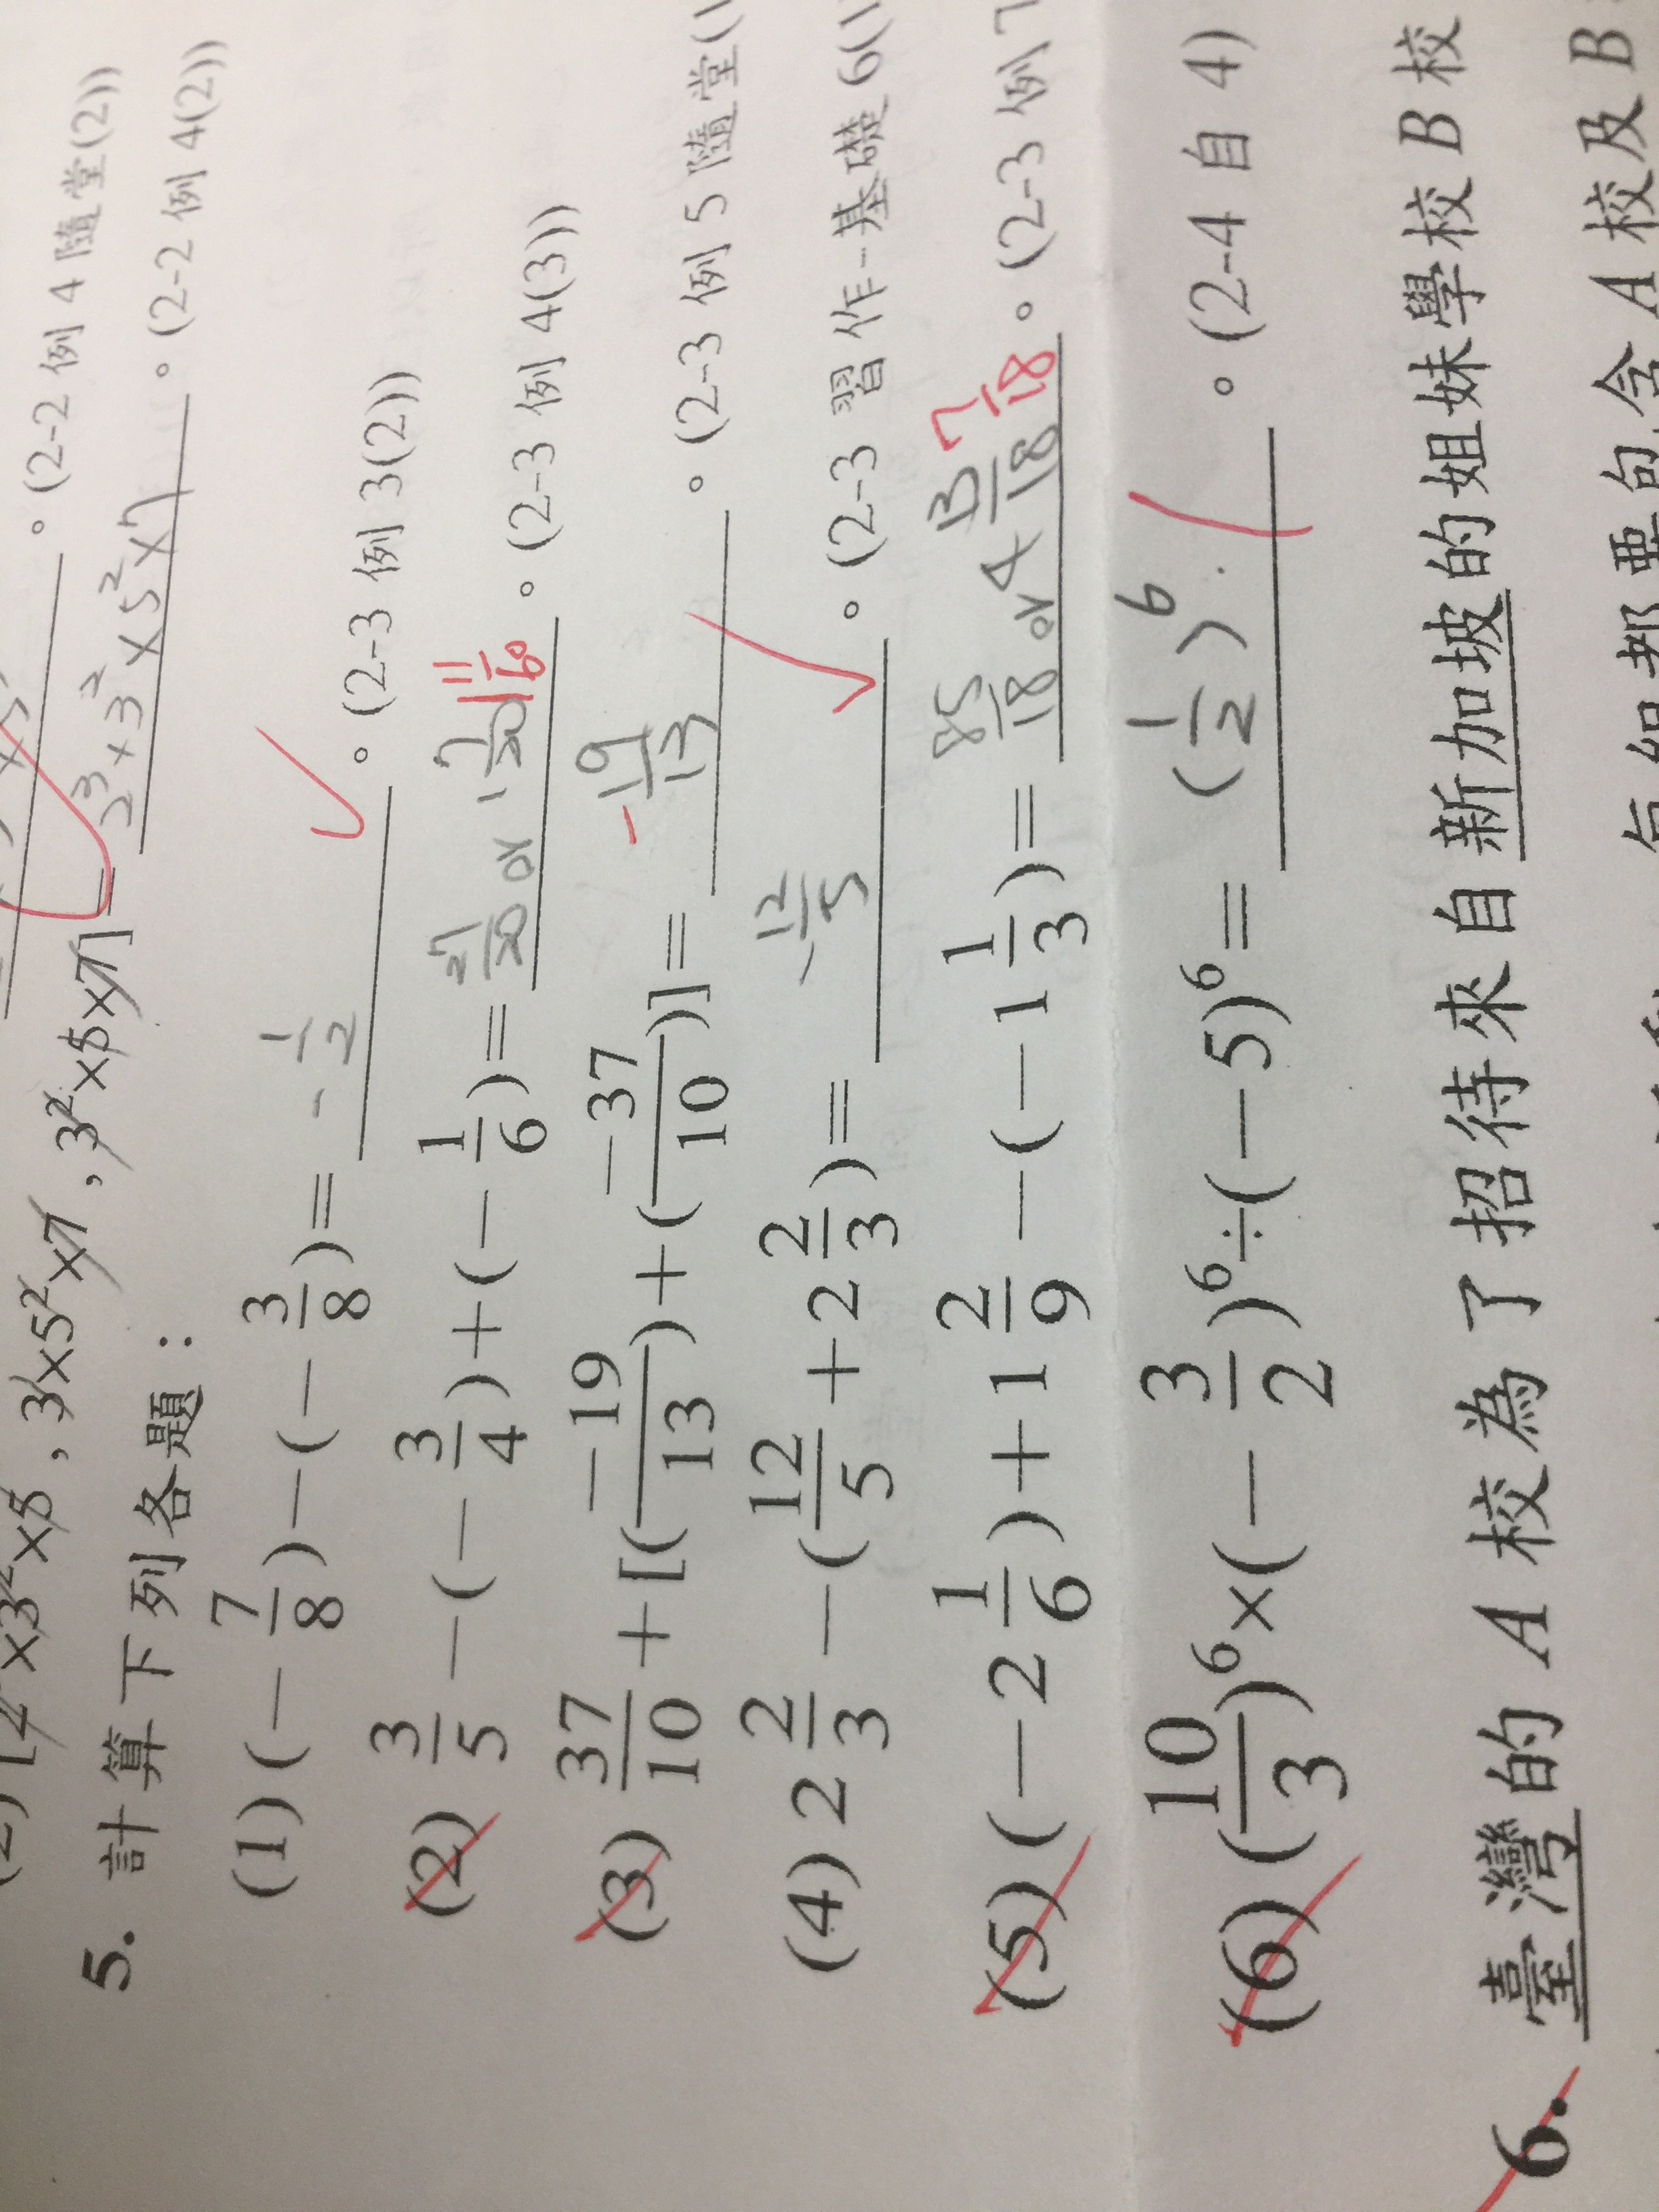 。(2-2 例 4 隨堂(2))
(2) [2²×3²×5 , 3×5²×7 , 3²×5×7]= 3³×3²×5²×7 。(2-2 例 4(2))
5. 計算下列各題：
(1) (−7/8)−(−3/8)= -1/2 。(2-3 例 3(2))
(2) 3/5−(−3/4)+(−1/6)= 27/20 or 1 7/20 1 11/60 。(2-3 例 4(3))
(3) 37/10+[(−19/13)+(−37/10)]= -19/13 。(2-3 例 5 隨堂(1
(4) 2 2/3−(12/5+2 2/3)= -12/5 。(2-3 習作-基礎 6(1
(5) (−2 1/6)+1 2/9−(−1 1/3)= 85/18 or 4 13/18 7/18 。(2-3 例 7
(6) (10/3)⁶×(−3/2)⁶÷(−5)⁶= (1/2)⁶ 。(2-4 自 4)
6. 臺灣的 A 校為了招待來自新加坡的姐妹學校 B 校
每組都要包含 A 校及 B